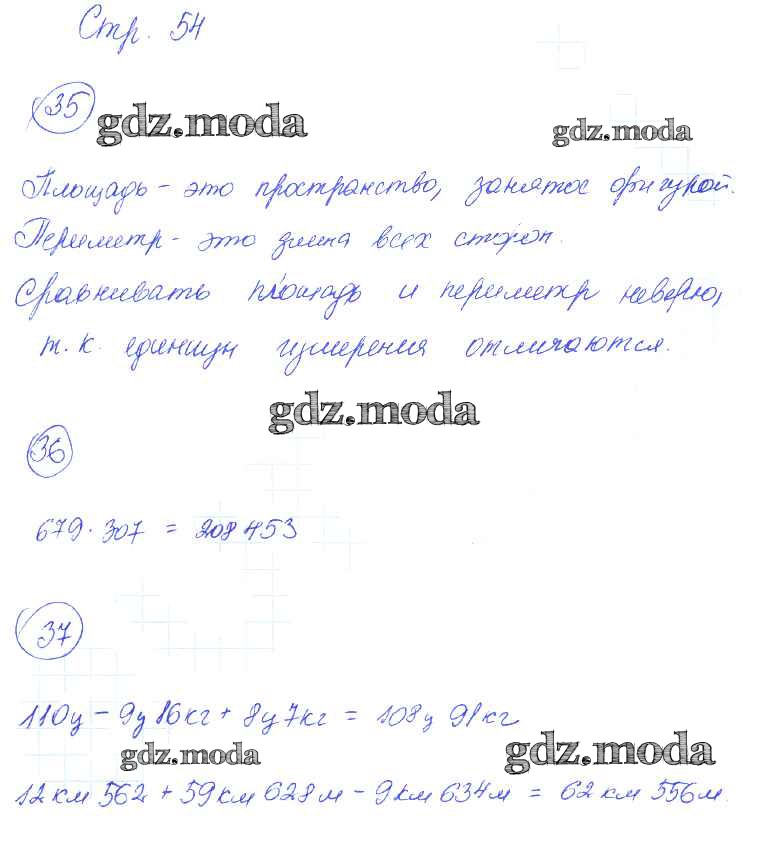 Стр. 54
35
gdz.moda
gdz.moda
Площадь - это пространство, занятое фигурой.
Периметр - это длина всех сторон.
Сравнивать площадь и периметр неверно,
т.к. единицы измерения отличаются.
gdz.moda
36
679 · 307 = 208 453
37
110ц - 9ц 16кг + 8ц 7кг = 108ц 91кг
gdz.moda
gdz.moda
12км 562 + 59км 628м - 9км 634м = 62км 556м.